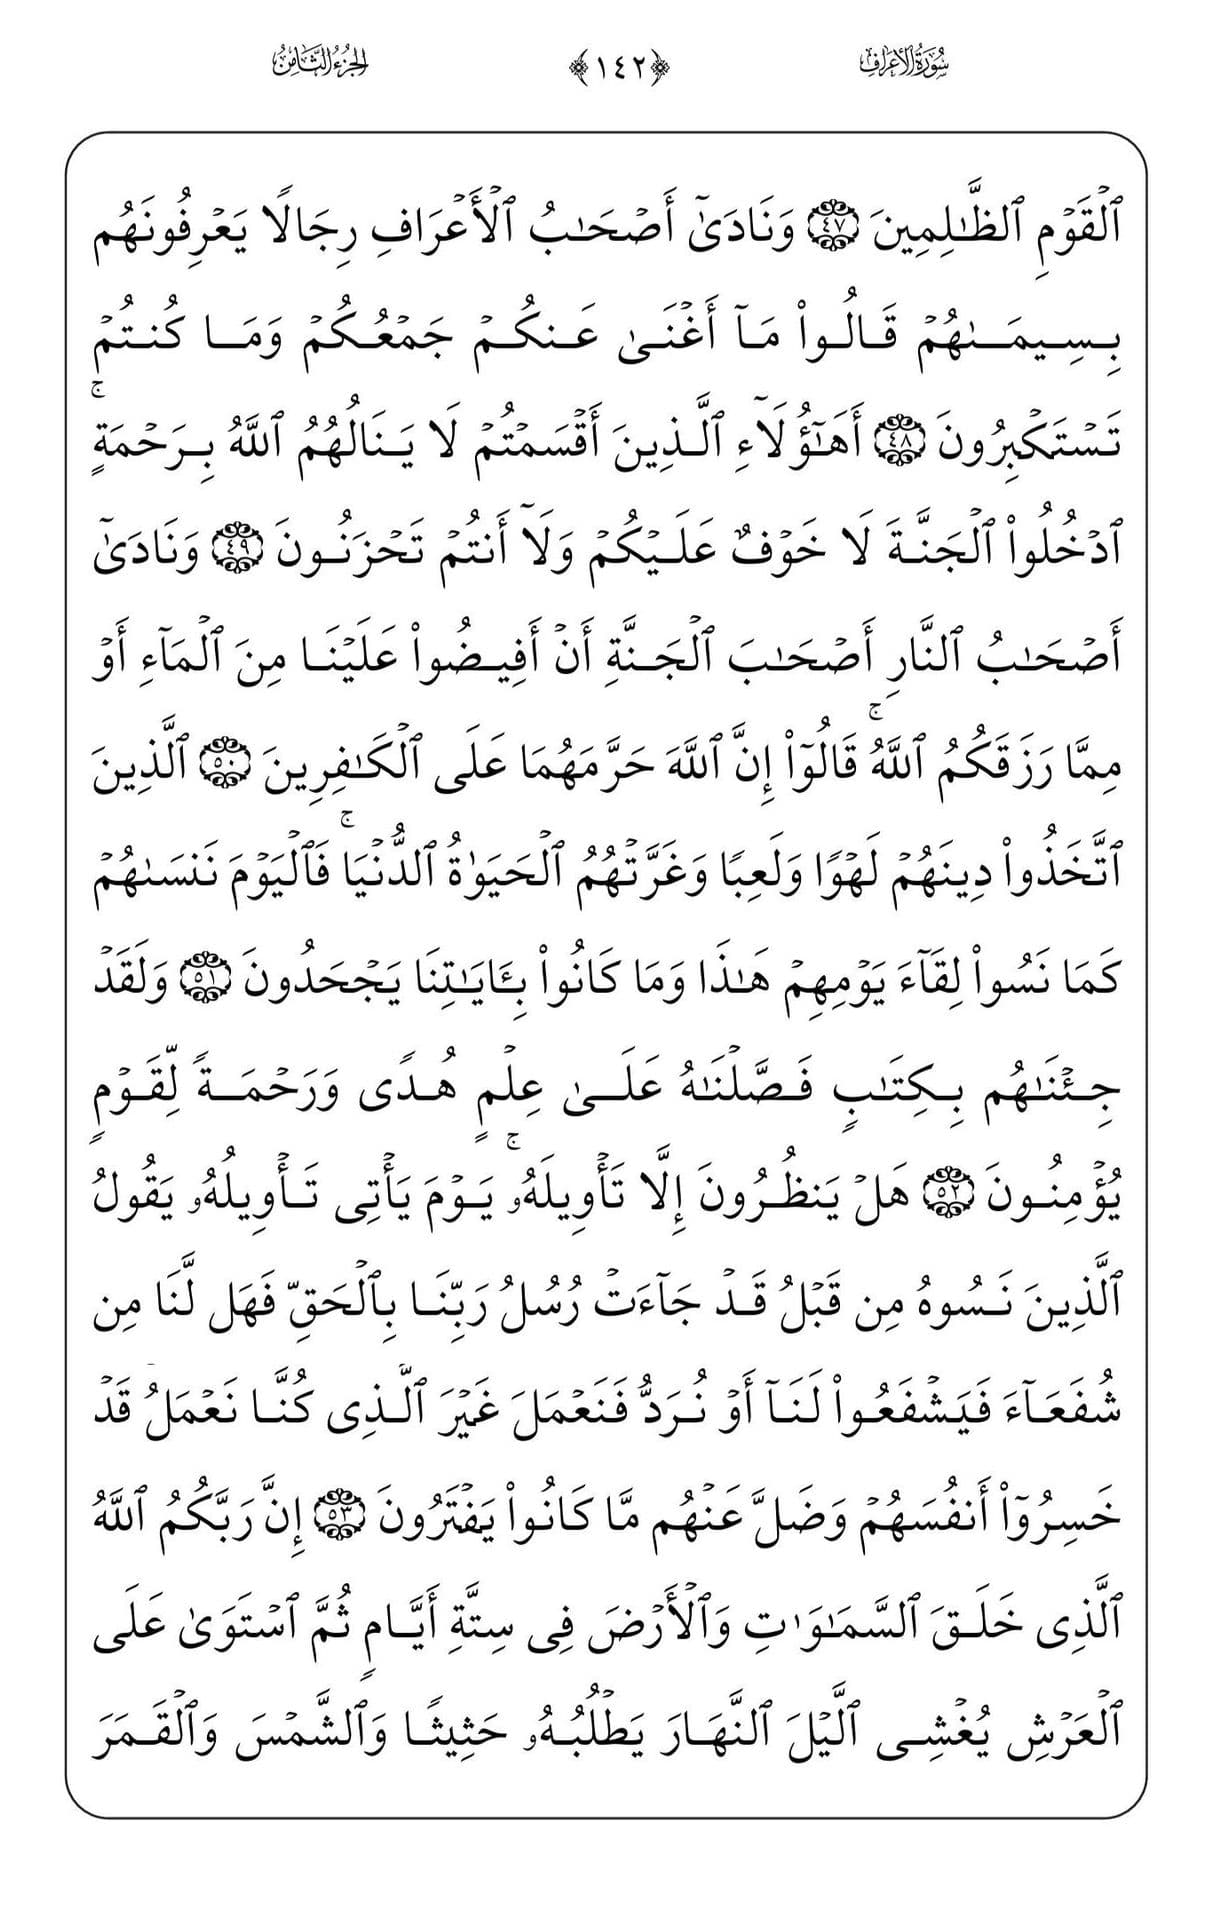 سُورَةُ الأَعْرَافِ ﴿١٤٢﴾ الجُزْءُ الثَّامِنُ
ٱلۡقَوۡمِ ٱلظَّـٰلِمِينَ ٤٧ وَنَادَىٰٓ أَصۡحَـٰبُ ٱلۡأَعۡرَافِ رِجَالًا يَعۡرِفُونَهُم
بِسِيمَـٰهُمۡ قَالُوا۟ مَآ أَغۡنَىٰ عَنكُمۡ جَمۡعُكُمۡ وَمَا كُنتُمۡ
تَسۡتَكۡبِرُونَ ٤٨ أَهَـٰٓؤُلَآءِ ٱلَّذِينَ أَقۡسَمۡتُمۡ لَا يَنَالُهُمُ ٱللَّهُ بِرَحۡمَةٍۚ
ٱدۡخُلُوا۟ ٱلۡجَنَّةَ لَا خَوۡفٌ عَلَيۡكُمۡ وَلَآ أَنتُمۡ تَحۡزَنُونَ ٤٩ وَنَادَىٰٓ
أَصۡحَـٰبُ ٱلنَّارِ أَصۡحَـٰبَ ٱلۡجَنَّةِ أَنۡ أَفِيضُوا۟ عَلَيۡنَا مِنَ ٱلۡمَآءِ أَوۡ
مِمَّا رَزَقَكُمُ ٱللَّهُۚ قَالُوٓا۟ إِنَّ ٱللَّهَ حَرَّمَهُمَا عَلَى ٱلۡكَـٰفِرِينَ ٥٠ ٱلَّذِينَ
ٱتَّخَذُوا۟ دِينَهُمۡ لَهۡوًا وَلَعِبًا وَغَرَّتۡهُمُ ٱلۡحَيَوٰةُ ٱلدُّنۡيَاۚ فَٱلۡيَوۡمَ نَنسَىٰهُمۡ
كَمَا نَسُوا۟ لِقَآءَ يَوۡمِهِمۡ هَـٰذَا وَمَا كَانُوا۟ بِـَٔايَـٰتِنَا يَجۡحَدُونَ ٥١ وَلَقَدۡ
جِئۡنَـٰهُم بِكِتَـٰبٍ فَصَّلۡنَـٰهُ عَلَىٰ عِلۡمٍ هُدًى وَرَحۡمَةً لِّقَوۡمٍ
يُؤۡمِنُونَ ٥٢ هَلۡ يَنظُرُونَ إِلَّا تَأۡوِيلَهُۥۚ يَوۡمَ يَأۡتِى تَأۡوِيلُهُۥ يَقُولُ
ٱلَّذِينَ نَسُوهُ مِن قَبۡلُ قَدۡ جَآءَتۡ رُسُلُ رَبِّنَا بِٱلۡحَقِّ فَهَل لَّنَا مِن
شُفَعَآءَ فَيَشۡفَعُوا۟ لَنَآ أَوۡ نُرَدُّ فَنَعۡمَلَ غَيۡرَ ٱلَّذِى كُنَّا نَعۡمَلُۚ قَدۡ
خَسِرُوٓا۟ أَنفُسَهُمۡ وَضَلَّ عَنۡهُم مَّا كَانُوا۟ يَفۡتَرُونَ ٥٣ إِنَّ رَبَّكُمُ ٱللَّهُ
ٱلَّذِى خَلَقَ ٱلسَّمَـٰوَٰتِ وَٱلۡأَرۡضَ فِى سِتَّةِ أَيَّامٍ ثُمَّ ٱسۡتَوَىٰ عَلَى
ٱلۡعَرۡشِ يُغۡشِى ٱلَّيۡلَ ٱلنَّهَارَ يَطۡلُبُهُۥ حَثِيثًا وَٱلشَّمۡسَ وَٱلۡقَمَرَ